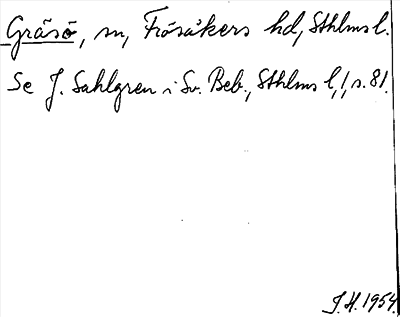 Gräsö, sn, Frösåkers hd, Sthlms l.
Se J. Sahlgren i Sv. Beb., Sthlms l, 1, s. 81.
J.H. 1954.